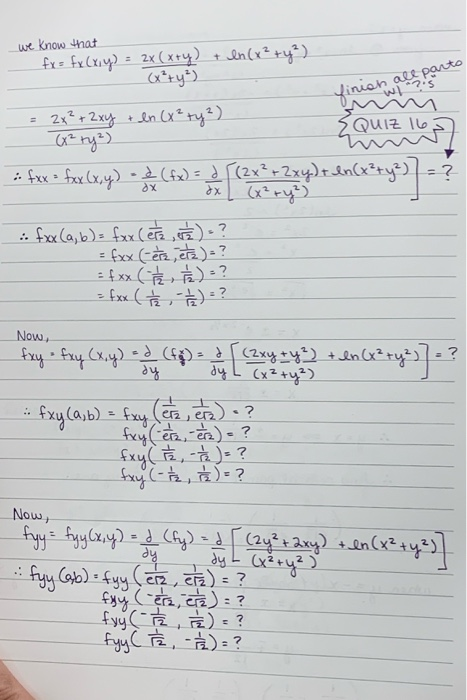 we know that
fx = fx(x,y) = 2x(x+y)/(x²+y²) + ln(x²+y²)
finish all parts w/ "?"s
= 2x²+2xy/(x²+y²) + ln(x²+y²)
QUIZ 16
∴ fxx = fxx(x,y) = ∂/∂x (fx) = ∂/∂x [(2x²+2xy)/(x²+y²) + ln(x²+y²)] = ?
∴ fxx(a,b) = fxx(1/e√2, 1/e√2) = ?
= fxx(-1/e√2, -1/e√2) = ?
= fxx(-1/√2, 1/√2) = ?
= fxx(1/√2, -1/√2) = ?
Now,
fxy = fxy(x,y) = ∂/∂y (fx) = ∂/∂y [(2xy+y²)/(x²+y²) + ln(x²+y²)] = ?
∴ fxy(a,b) = fxy(1/e√2, 1/e√2) = ?
fxy(-1/e√2, -1/e√2) = ?
fxy(1/√2, -1/√2) = ?
fxy(-1/√2, 1/√2) = ?
Now,
fyy = fyy(x,y) = ∂/∂y (fy) = ∂/∂y [(2y²+2xy)/(x²+y²) + ln(x²+y²)]
∴ fyy(a,b) = fyy(1/e√2, 1/e√2) = ?
fyy(-1/e√2, -1/e√2) = ?
fyy(-1/√2, 1/√2) = ?
fyy(1/√2, -1/√2) = ?